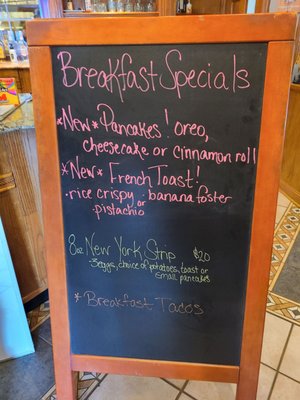 Breakfast Specials
*New* Pancakes! oreo,
cheesecake or cinnamon roll
*New* French Toast!
• rice crispy or banana foster
• pistachio
8oz New York Strip $20
3eggs, choice of potatoes, toast or
small pancakes
* Breakfast Tacos